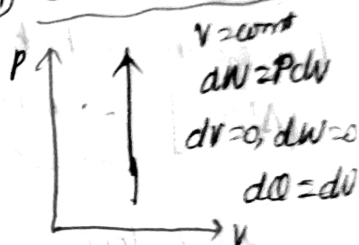 V = const
P
dW = PdV
dV = 0, dW = 0
dQ = dU
V